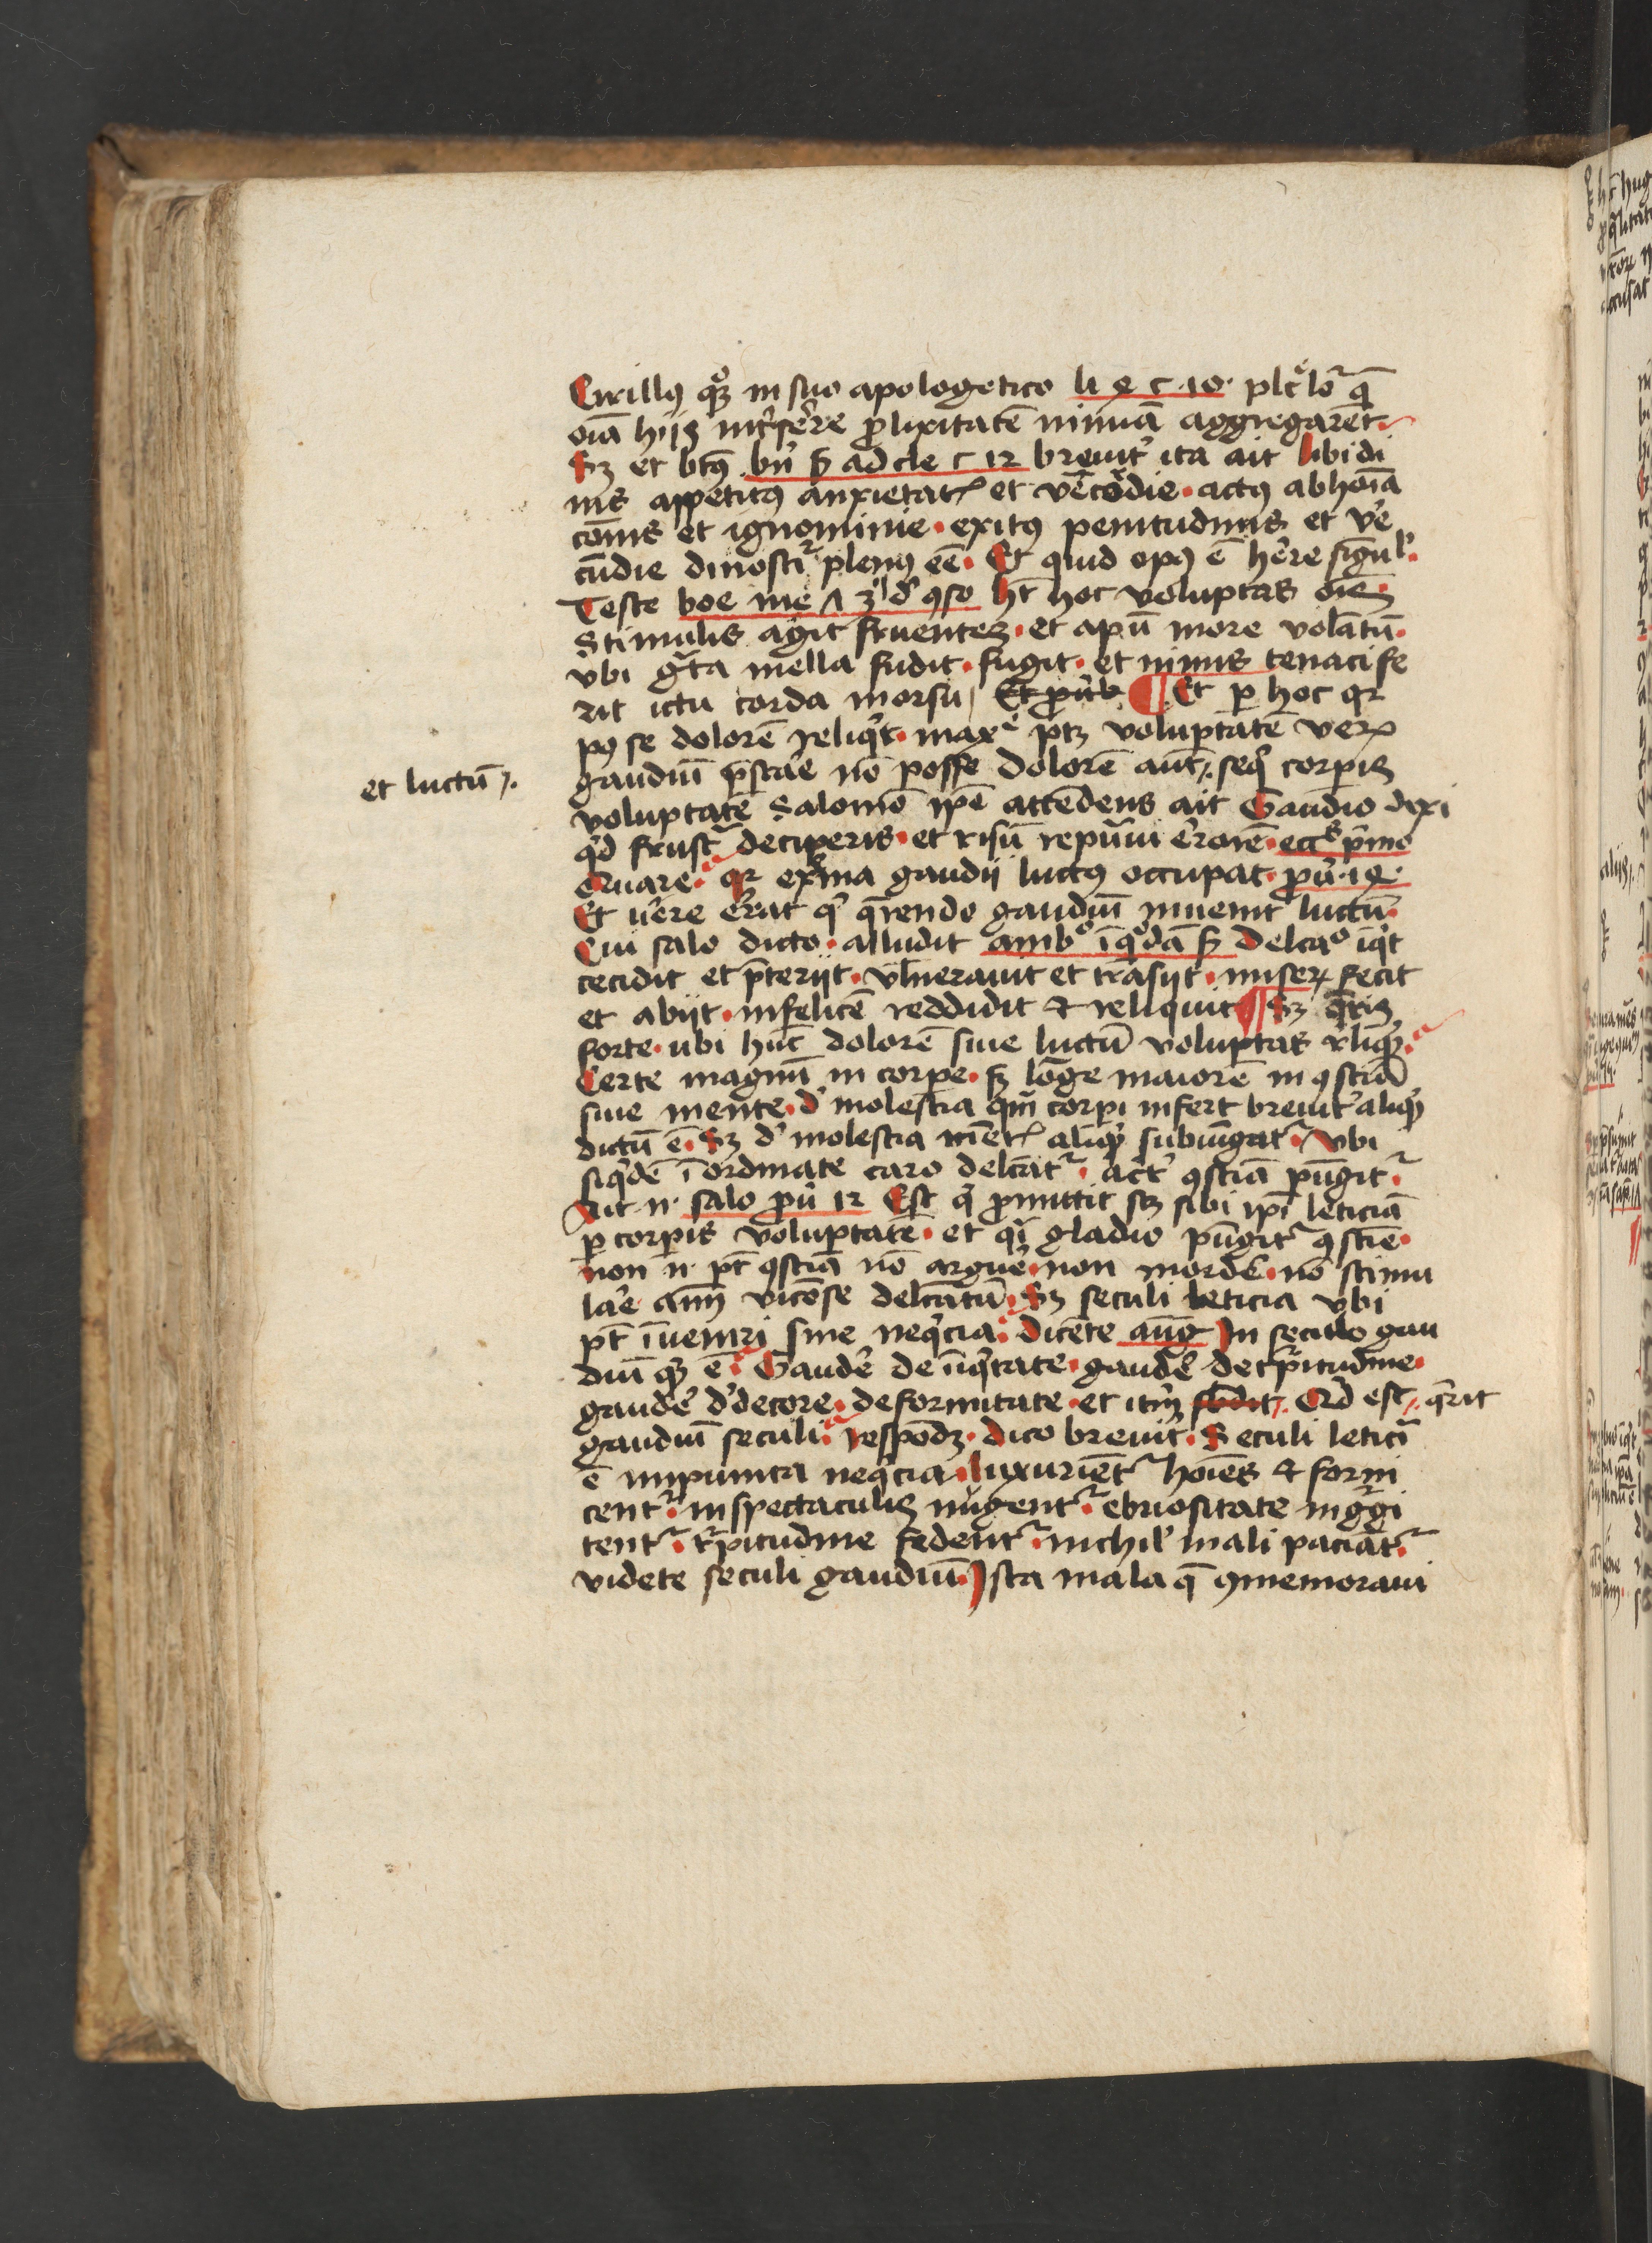 Cirillꝰ qꝫ in suo apologetico li 4 c 10 plc̄ lōr q̄
oīa hijs int̕ser̕e ꝓlixitatē nimiā aggregarēt
Sꝫ et btꝰ bn̄ s̄ ad cle c 12 breuit̕ ita ait libidi
nis appetitꝰ anxietatꝭ et vēcōdie · actꝰ abhoīa
cōnis et ignominie · exitꝰ penitudinis et v̕e
cūdie dinosci᷑ plenꝰ eē · Et quid opꝰ ē her̕e singul̕
Teste boe me 7 3° d̕ ꝯso hꝫ hoc voluptas oīs
Stimulis agit fruentes · et apū more volātū
vbi gͣta mella fudit · fugit · et nimis tenaci fe
rit ictu corda morsu / ¶ Et p hoc qr
pꝰ se dolorē reliqͥt · maxͤ ptꝫ voluptatē veꝝ
gaudiū p̄star̕e nō posse dolorē aūt / seqͥ corpis
et luctū /.
voluptatē Salomō ip̄e attēdens ait Gaudio dixi
qͥd frustͣ deciperis · et risū reputaui errorē · ecc̄s p̄mo
qr ext̕ma gaudij luctꝰ occupat · ꝓu̕ 14
Et uēre er̕rat qͥ q̄rendo gaudiū inuenit luctū
Cui salo dicto · alludit ambͦ ī qͦdā s̄ delcāͦ īqͥt
cecidit et p̄terijt · vlnerauit et trāsijt · miseꝝ fecit
et abijt · infelicē reddidit & reliquit ¶ Sꝫ q̄ris
forte · ubi hūc dolorē siue luctū voluptas rliqͥt
Certe magnū in corpe · sꝫ lōge maiorē in ꝯsciā
siue mente · d̕ molestia qm̄ corpi infert breuit̕ aliqͥd
dictū ē · Sꝫ d̕ molestia mētꝭ aliqͥd subiūgat᷑ · Vbi
siqͥdē īordinate caro delcāt᷑ · ꝯsciā pūgit᷑
Ait n · salo ꝓu̕ 12 Est qͥ ꝓmittit sꝫ sibi ip̄i leticiā
p corpis voluptatē · et qͣi gladio pūgit᷑ ꝯsciē ·
non n · pt̄ ꝯsciā nō arguer̕e · non morder̕e · nō stimu
lar̕e aīm vicōse delcātū · Sꝫ seculi leticia vbi
pt̄ īueniri sine neqͥcia · dicēte aug In seculo gau
diū qͥd ē · Gauder̕e de īiqͥtate · gauder̕e de t᷑pitudine ·
gauder̕e d̕decore · deformitate · et itm̄ Qͥd est / q̄rit
gaudiū seculi · respōdꝫ · dico breuit̕ · Seculi leticī
ē impunita neqͥcia · luxuriēt᷑ hoīes & forni
cent᷑ · in spectaculis nugent᷑ · ebriositate ingͥgi
tent᷑ · t᷑pitudine fedent᷑ · nichil mali paciāt᷑ ·
videte seculi gaudiū · Ista mala q̄ ꝯmemoraui